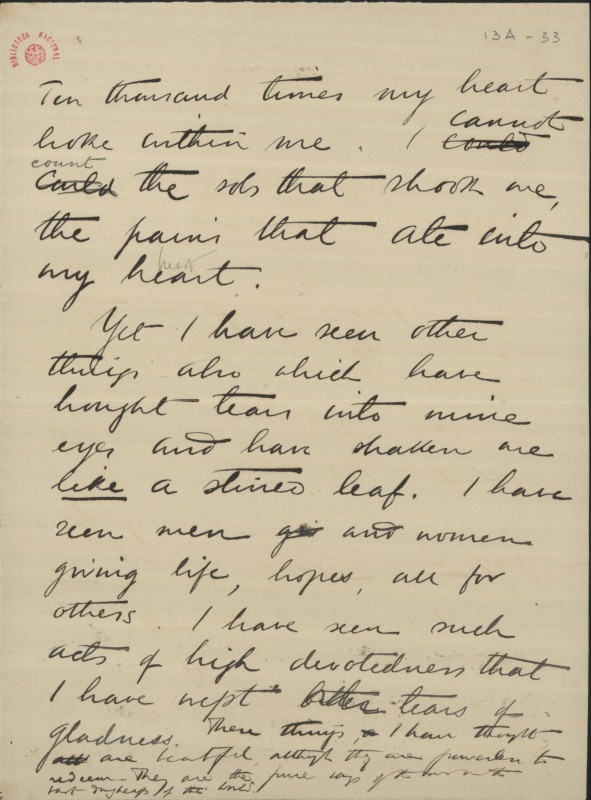 BIBLIOTECA NACIONAL
13A - 33
Ten thousand times my heart
broke within me. I could cannot
could count the sobs that shook me,
the pains that ate into
my heart. heart
Yet I have seen other
things also which have
bought tears into mine
eyes and have shaken me
like a stirred leaf. I have
seen men gi and women
giving life, hopes, all for
others. I have seen such
acts of high devotedness that
I have wept bitter tears of
gladness. These things, I have thought
are beautiful, although they are powerless to
redeem. They are the pure rays of the sun on the
vast dungheaps of the world.